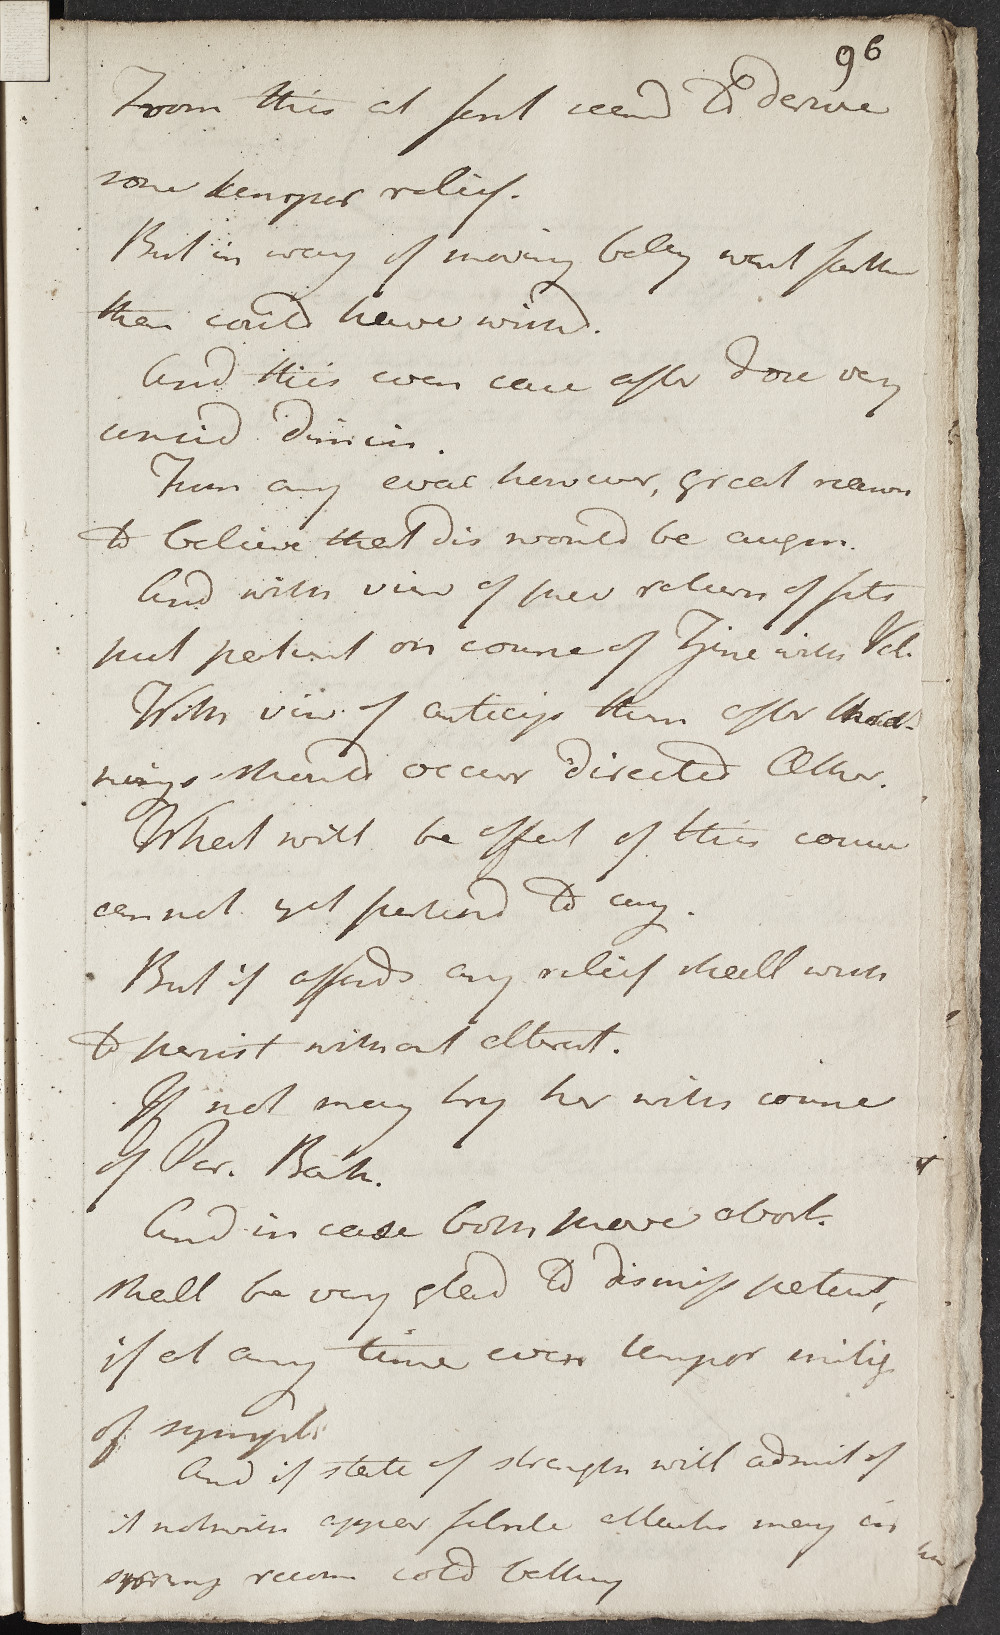 96
From this at first seemd to derive
some tempor relief.
But in way of moving belly went farther
than could have wishd.
And this even case after dose very
consid dimin.
From any evac however, great reason
to believe that dis would be augm.
And with view of prev return of fits
put patient on course of Zinc with Val.
With view of anticip them after threat-
nings should occur directed Æther.
What will be effect of this course
can not yet pretend to say.
But if affords any relief shall wish
to persist without alterat.
If not may try her with course
of Per. Bark.
And in case both prove abort.
shall be very glad to dismiss patient,
if at any time even tempor mitig
of sympts
And if state of strength will admit of
it notwith appar febrile attacks may in
spring recom cold bathing